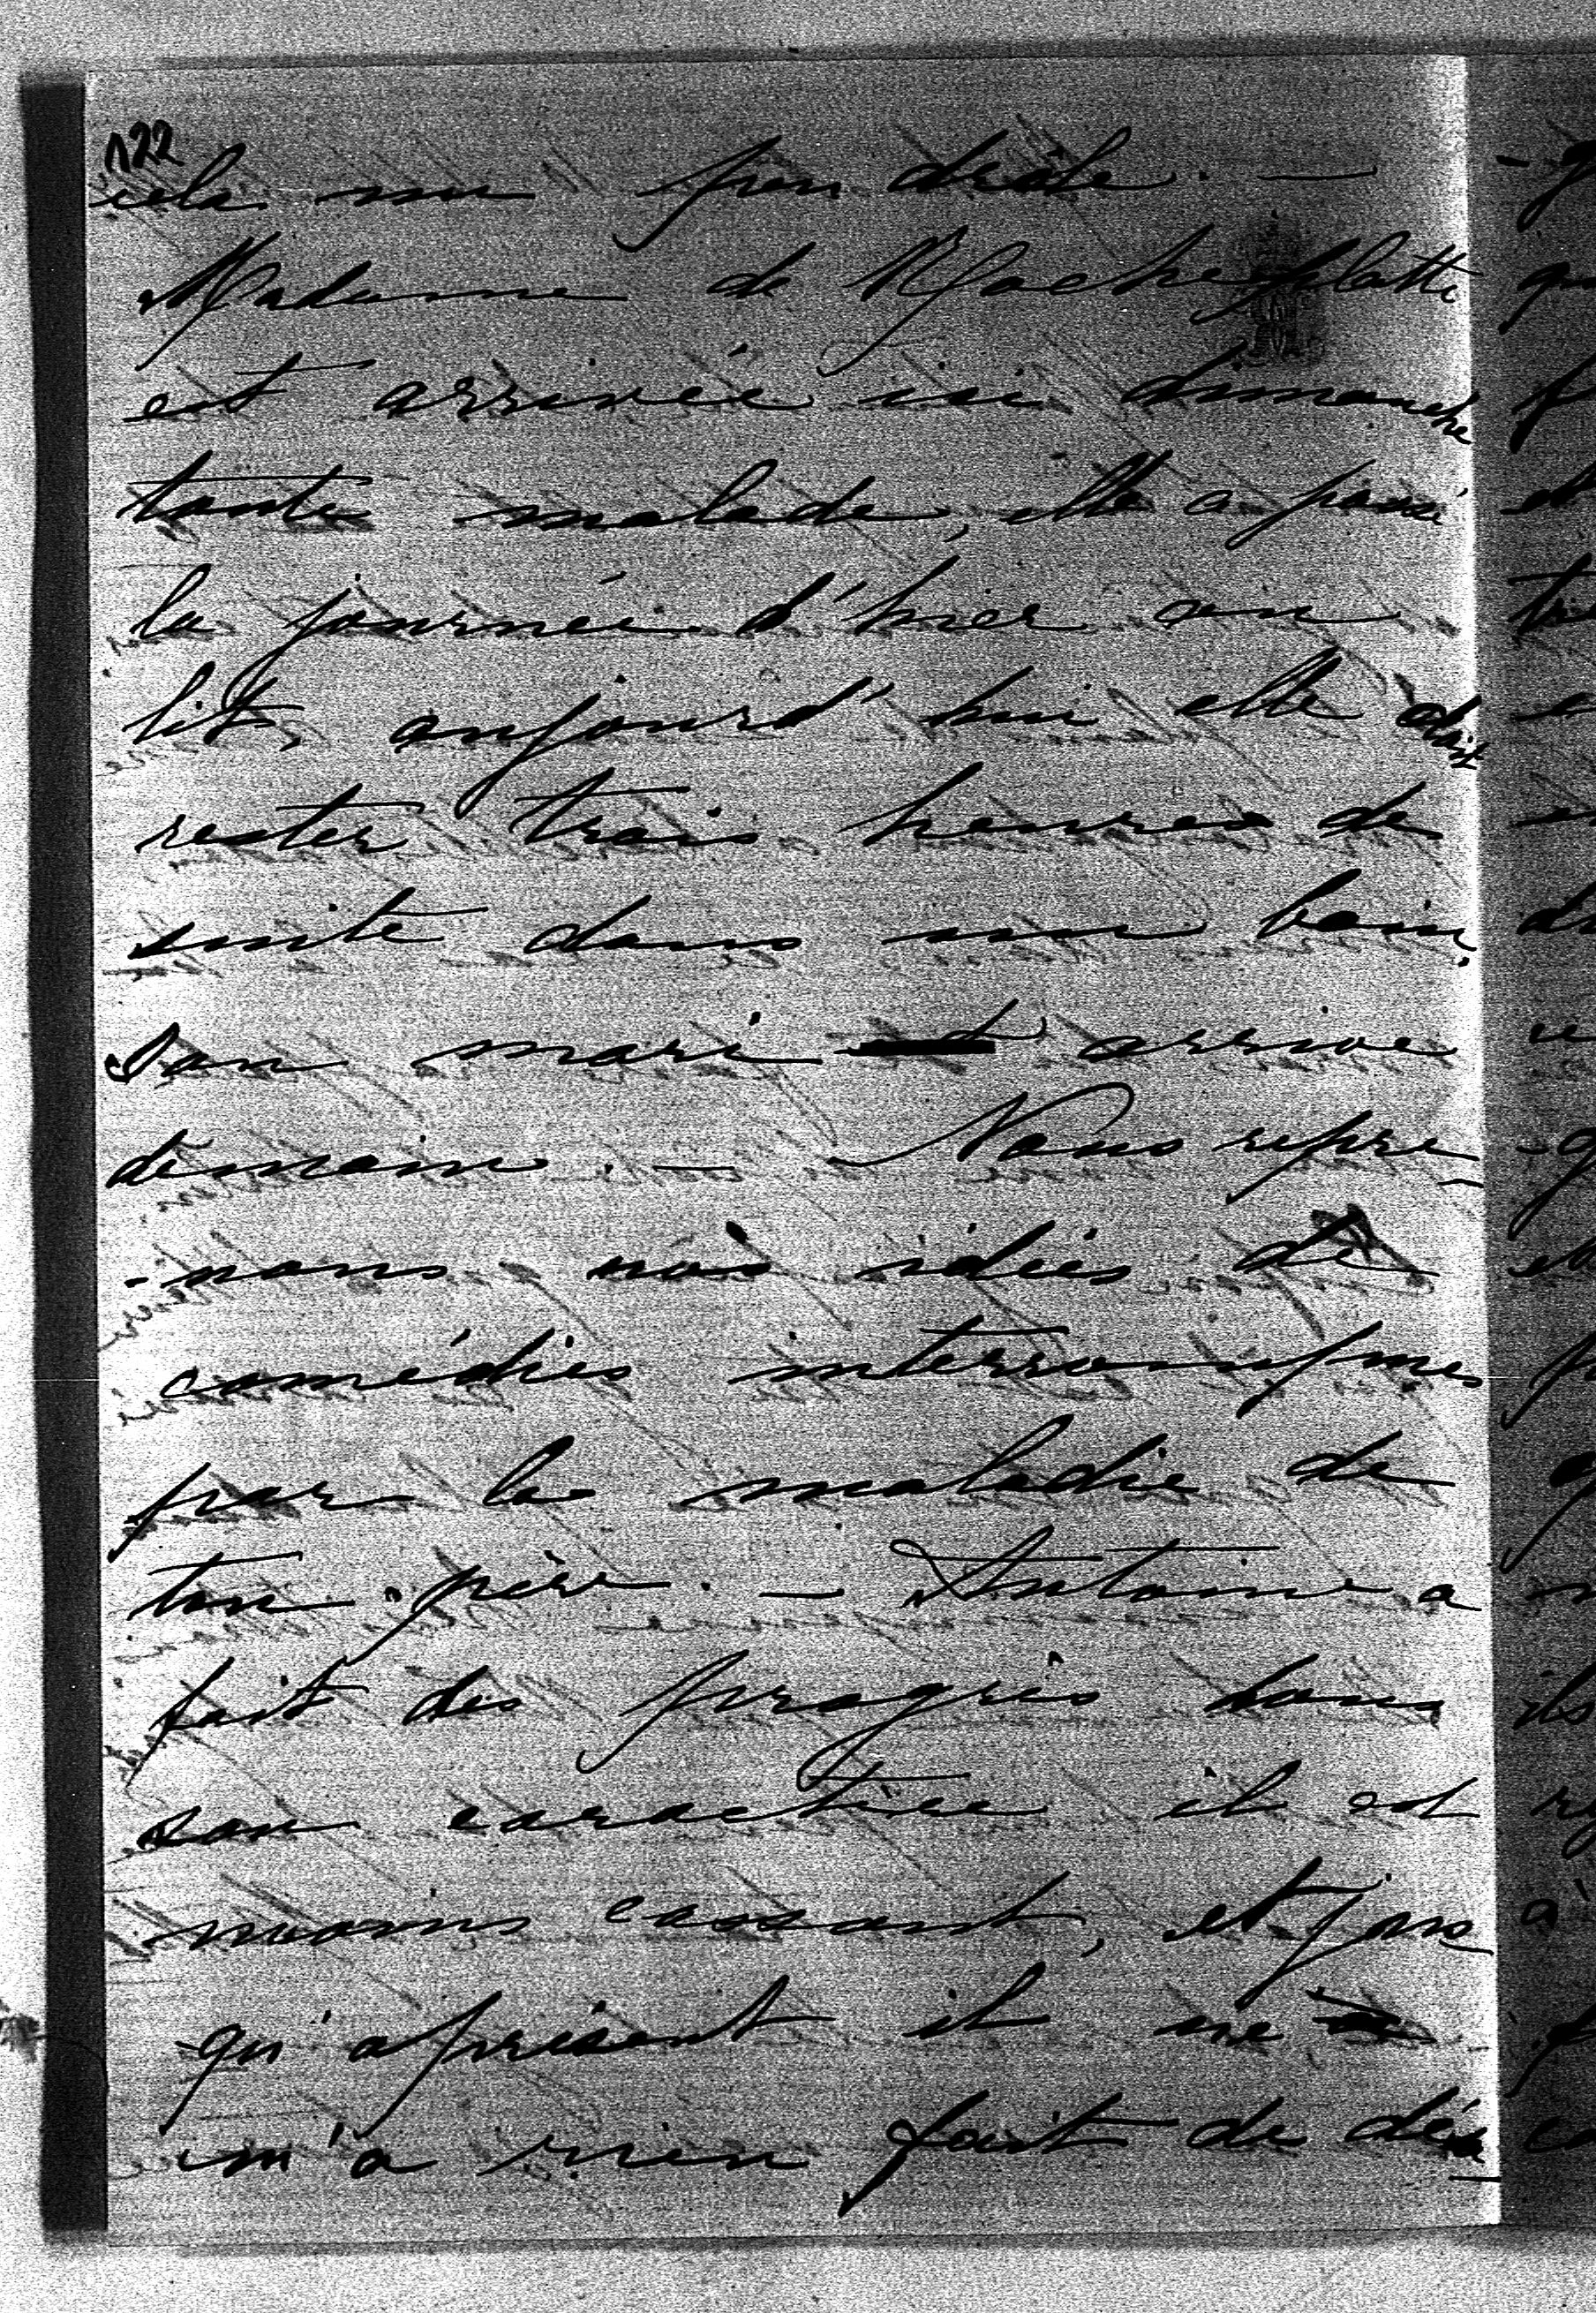 122
cela un peu drôle. —
Madame de Rocheplatte
est arrivée ici dimanche
toute malade, elle a passé
la journée d'hier au
lit, aujourd'hui elle doit
rester trois heures de
suite dans un bain.
Son mari arrive
demain. — Nous repre-
-nons nos idées de
comédies interrompues
par la maladie de
ton père. — Antoine a
fait des progrès dans
son caractère il est
moins cassant, et jus-
qu'à présent il ne
m'a rien fait de désa-